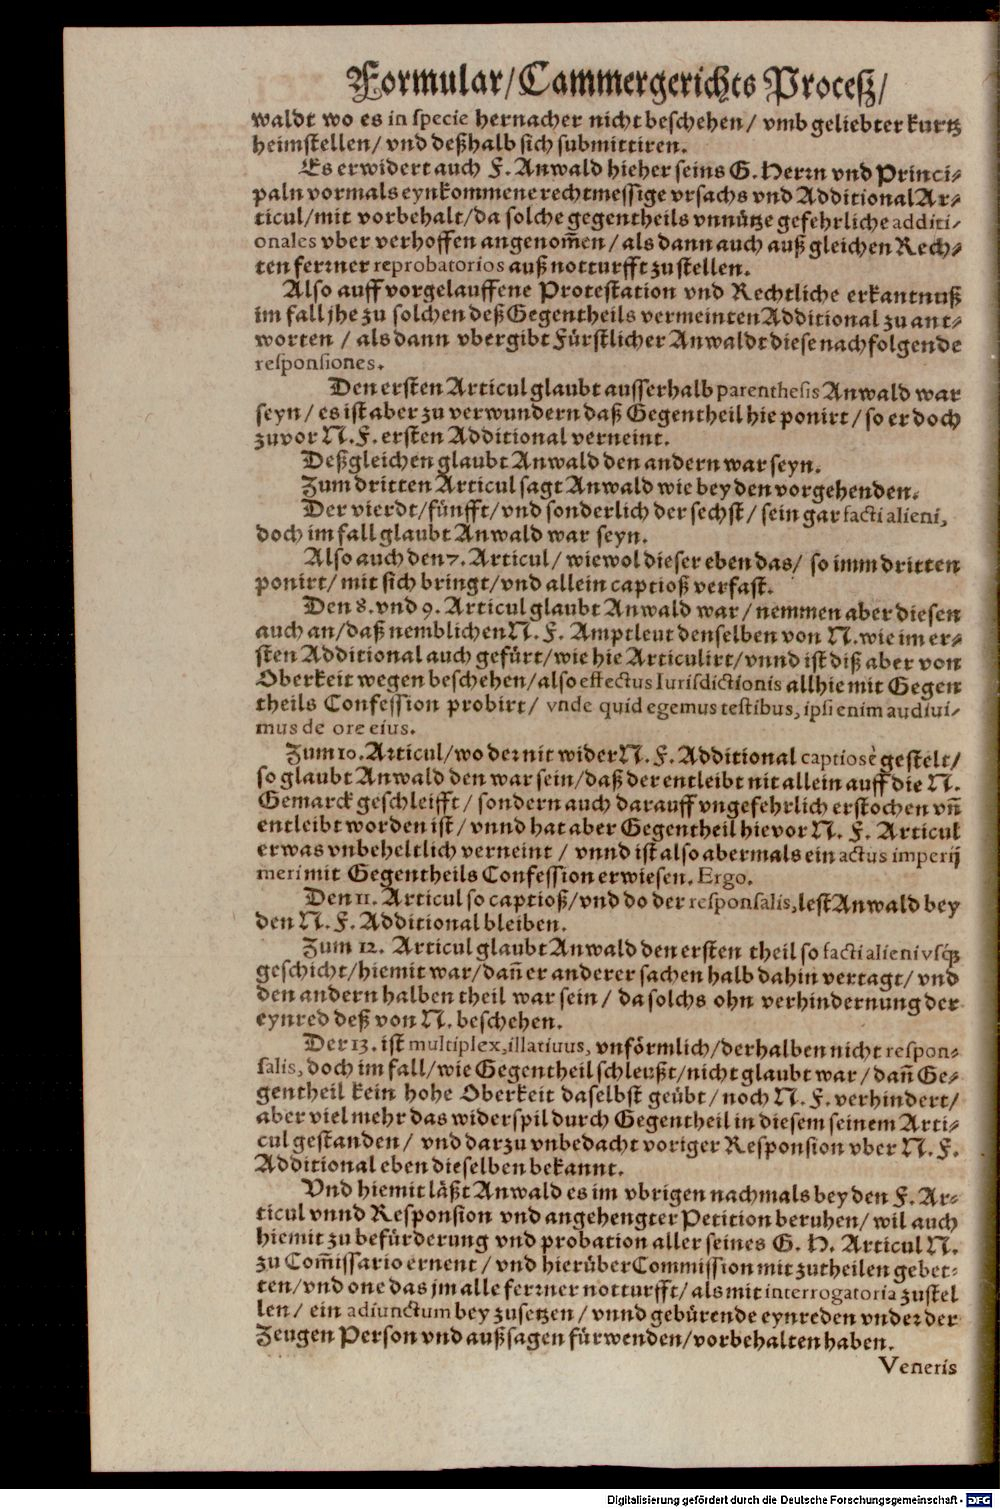 Formular/Cammergerichts Proceß/
waldt wo es in specie hernacher nicht beschehen/ vmb geliebter kurtz
heimstellen/ vnd deßhalb sich submittiren.
Es erwidert auch F. Anwald hieher seins G. Herrn vnd Princi-
paln vormals eynkommene rechtmessige vrsachs vnd Additional Ar-
ticul/mit vorbehalt/da solche gegentheils vnnütze gefehrliche additi-
onales vber verhoffen angenom̃en/ als dann auch auß gleichen Rech-
ten ferrner reprobatorios auß notturfft zu stellen.
Also auff vorgelauffene Protestation vnd Rechtliche erkantnuß
im fall jhe zu solchen deß Gegentheils vermeinten Additional zu ant-
worten / als dann vbergibt Fürstlicher Anwaldt diese nachfolgende
responsiones.
Den ersten Articul glaubt ausserhalb parenthesis Anwald war
seyn/ es ist aber zu verwundern daß Gegentheil hie ponirt/ so er doch
zuvor N. F. ersten Additional verneint.
Deßgleichen glaubt Anwald den andern war seyn.
Zum dritten Articul sagt Anwald wie bey den vorgehenden.
Der vierdt/fünfft/vnd sonderlich der sechst/ sein gar facti alieni,
doch im fall glaubt Anwald war seyn.
Also auch den 7. Articul/ wiewol dieser eben das/ so imm dritten
ponirt/ mit sich bringt/vnd allein captioß verfast.
Den 8. vnd 9. Articul glaubt Anwald war/ nemmen aber diesen
auch an/daß nemblichen N. F. Amptleut denselben von N. wie im er-
sten Additional auch gefürt/wie hie Articulirt/vnnd ist diß aber von
Oberkeit wegen beschehen/also effectus Iurisdictionis allhie mit Gegen
theils Confession probirt/ vnde quid egemus testibus, ipsi enim audiui-
mus de ore eius.
Zum 10. Articul/wo der nit wider N. F. Additional captiosè gestelt/
so glaubt Anwald den war sein/daß der entleibt nit allein auff die N.
Gemarck geschleifft/ sondern auch darauff vngefehrlich erstochen vñ
entleibt worden ist/ vnnd hat aber Gegentheil hievor N. F. Articul
erwas vnbeheltlich verneint / vnnd ist also abermals ein actus imperij
meri mit Gegentheils Confession erwiesen. Ergo.
Den 11. Articul so captioß/vnd do der responsalis, lest Anwald bey
den N. F. Additional bleiben.
Zum 12. Articul glaubt Anwald den ersten theil so facti alieni vsq́;
geschicht/hiemit war/dañ er anderer sachen halb dahin vertagt/ vnd
den andern halben theil war sein/ da solchs ohn verhindernung der
eynred deß von N. beschehen.
Der 13. ist multiplex, illatiuus, vnförmlich/derhalben nicht respon-
salis, doch im fall/wie Gegentheil schleußt/nicht glaubt war/dañ Ge-
gentheil kein hohe Oberkeit daselbst geübt/ noch N. F. verhindert/
aber viel mehr das widerspil durch Gegentheil in diesem seinem Arti-
cul gestanden/ vnd darzu vnbedacht voriger Responsion vber N. F.
Additional eben dieselben bekannt.
Vnd hiemit läßt Anwald es im vbrigen nachmals bey den F. Ar-
ticul vnnd Responsion vnd angehengter Petition beruhen/ wil auch
hiemit zu befürderung vnd probation aller seines G. H. Articul N.
zu Com̃issario ernent/ vnd hierüber Commission mit zutheilen gebet-
ten/vnd one das jm alle ferrner notturfft/als mit interrogatoria zustel
len/ ein adiunctum bey zusetzen/ vnnd gebürende eynreden vnder der
Zeugen Person vnd außsagen fürwenden/vorbehalten haben.
Veneris
Digitalisierung gefördert durch die Deutsche Forschungsgemeinschaft - DFG